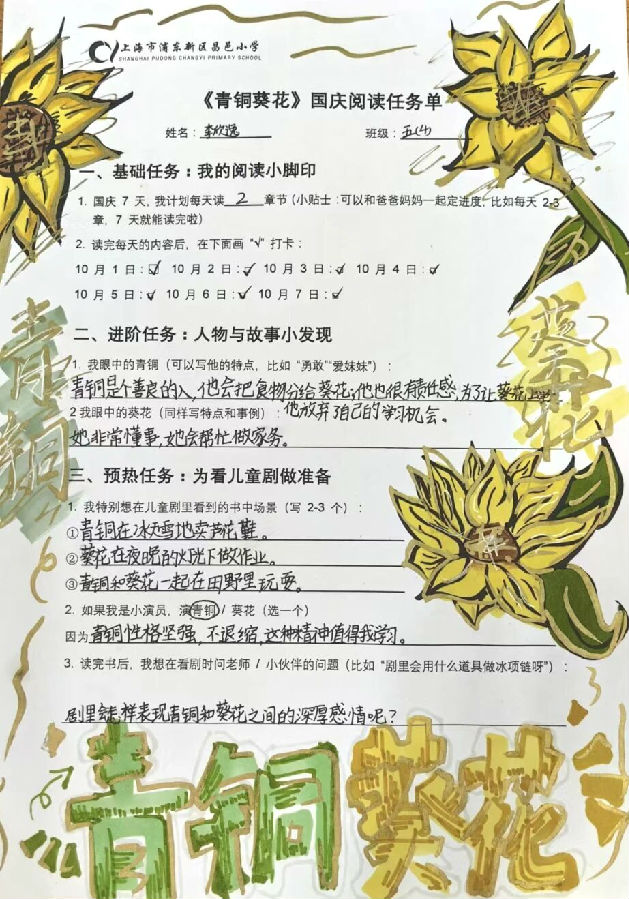 上海市浦东新区昌邑小学
SHANGHAI PUDONG CHANGYI PRIMARY SCHOOL
《青铜葵花》国庆阅读任务单
姓名：李欣逸 班级：五(4)
一、基础任务：我的阅读小脚印
1. 国庆 7 天，我计划每天读 2 章节（小贴士：可以和爸爸妈妈一起定进度，比如每天 2-3
章，7 天就能读完啦）
2. 读完每天的内容后，在下面画 "√" 打卡：
10 月 1 日：√ 10 月 2 日：√ 10 月 3 日：√ 10 月 4 日：√
10 月 5 日：√ 10 月 6 日：√ 10 月 7 日：√
青铜
葵花
二、进阶任务：人物与故事小发现
1. 我眼中的青铜（可以写他的特点，比如 "勇敢""爱妹妹"）：
青铜是个善良的人，他会把食物分给葵花；他也很有责任感，为了让葵花上学，
他放弃了自己的学习机会。
2 我眼中的葵花（同样写特点和事例）：
她非常懂事，她会帮忙做家务。
三、预热任务：为看儿童剧做准备
1. 我特别想在儿童剧里看到的书中场景（写 2-3 个）：
①青铜在冰天雪地卖芦花鞋。
②葵花在夜晚的火光下做作业。
③青铜和葵花一起在田野里玩耍。
2. 如果我是小演员，演青铜 / 葵花（选一个）
因为青铜性格坚强，不退缩，这种精神值得我学习。
3. 读完书后，我想在看剧时问老师 / 小伙伴的问题（比如 "剧里会用什么道具做冰项链呀"）：
剧里会怎样表现青铜和葵花之间的深厚感情呢？
青铜葵花